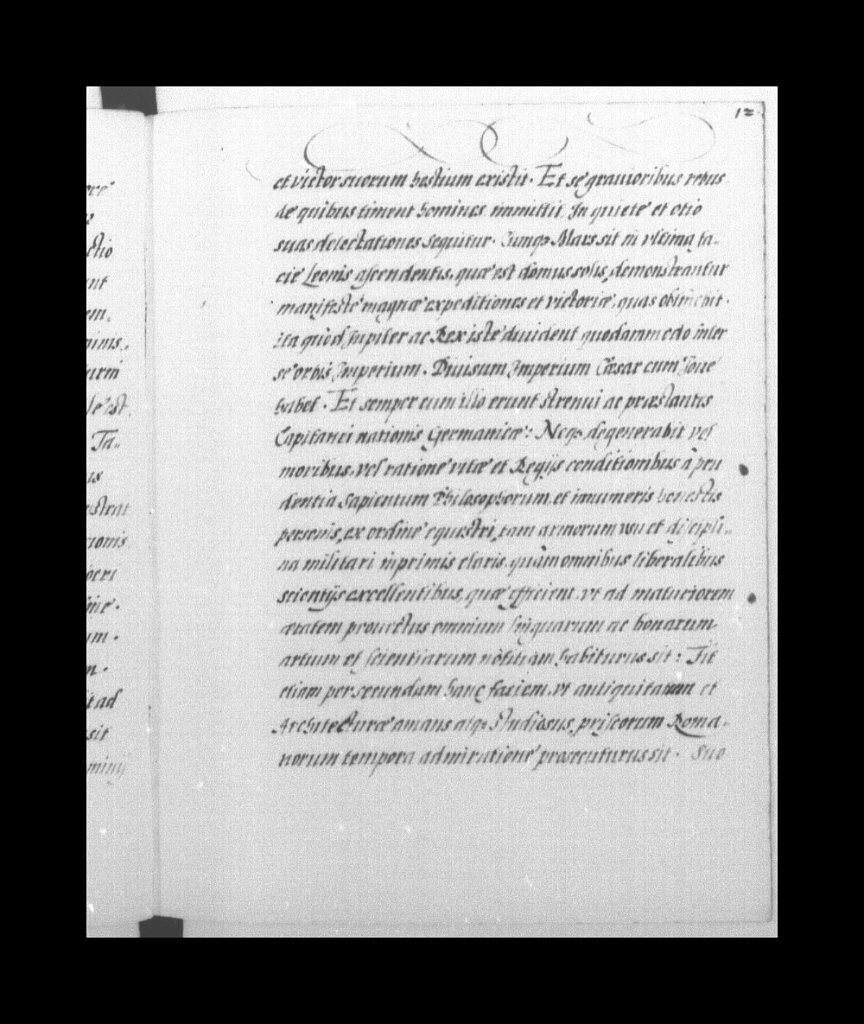 12
et victor suorum hostium existit. Et se grauioribus rebus
de quibus timent homines immittit. In quiete et otio
suas delectationes sequitur. Cumq3 Mars sit in vltima fa-
cie Leonis ascendentis, quæ est domus solis, demonstrantur
manifeste magnæ expeditiones et victoriæ, quas obtinebit.
ita quod Jupiter ac Rex iste diuident quodammodo inter
se orbis Imperium. Diuisum Imperium Cæsar cum Ioue
habet. Et semper cum illo erunt strenui ac præstantis
Capitanei nationis Germanicæ: Neq3 degenerabit vel
moribus, vel ratione vitæ et Regijs conditionibus à pru
dentia Sapientum Philosophorum, et innumeris honestis
personis, ex ordine equestri, tam armorum usu et discipli-
na militari inprimis claris, quàm omnibus liberalibus
scientijs excellentibus, quæ efficient, vt ad maturiorem
ætatem prouectus omnium linguarum ac bonarum
artium et scientiarum notitiam habiturus sit: Fit
etiam per secundam hanc faciem, vt antiquitatum et
Architecturæ amans atq3 studiosus, priscorum Roma-
norum tempora admiratione prosecuturus sit. Suo
ctio
unt
em.
urni
Ta-
us
istrat
tionis
um.
it ad
sit